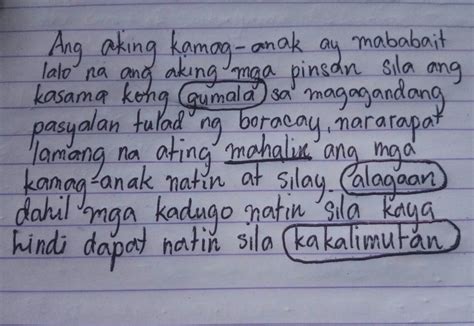 Ang aking kamag-anak ay mababait
lalo na ang aking mga pinsan sila ang
kasama kong gumala sa magagandang
pasyalan tulad ng boracay, nararapat
lamang na ating mahalin ang mga
kamag-anak natin at silay alagaan
dahil mga kadugo natin sila kaya
hindi dapat natin sila kakalimutan